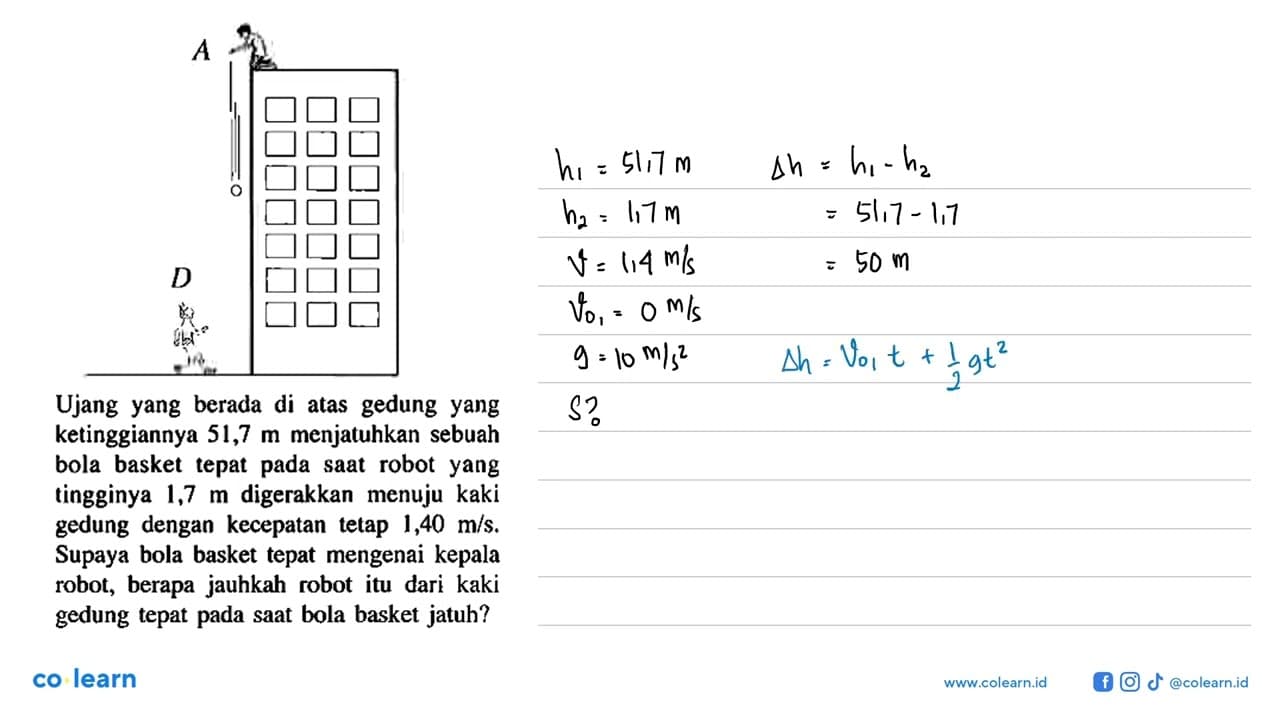 A
D
Ujang yang berada di atas gedung yang
ketinggiannya 51,7 m menjatuhkan sebuah
bola basket tepat pada saat robot yang
tingginya 1,7 m digerakkan menuju kaki
gedung dengan kecepatan tetap 1,40 m/s.
Supaya bola basket tepat mengenai kepala
robot, berapa jauhkah robot itu dari kaki
gedung tepat pada saat bola basket jatuh?
h₁ = 51,7 m
h₂ = 1,7 m
v = 1,4 m/s
v₀₁ = 0 m/s
g = 10 m/s²
S?
Δh = h₁ - h₂
= 51,7 - 1,7
= 50 m
Δh = v₀₁ t + 1/2 gt²
co learn
www.colearn.id
@colearn.id